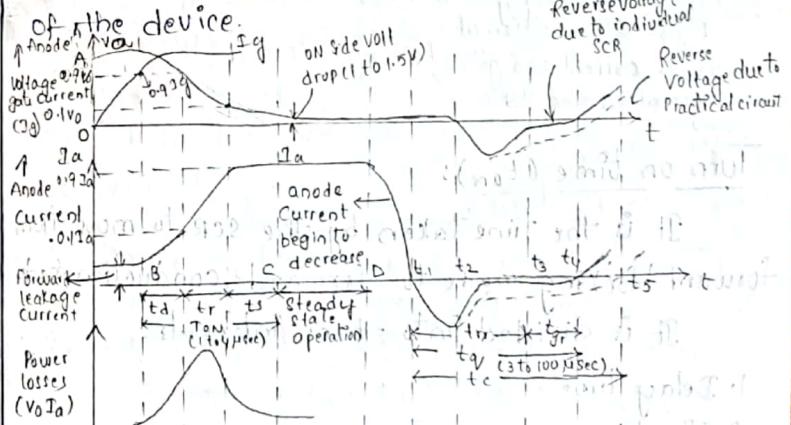 of the device.
Anode Va
A
Voltage 0.9Vo
gate current
(Ig) 0.1Vo
O
Ig
0.9Ig
ON Side Volt
drop (1 to 1.5V)
Reverse Voltage
due to individual
SCR
Reverse
Voltage due to
Practical circuit
t
Ia
Anode 0.9Ia
Current
0.1Ia
Ia
anode
Current
begin to
decrease
Forward
leakage
Current
B C D t1 t2 t3 t4 t5 t
td tr ts Steady
State
operation
TON
(1 to 4 μsec)
trr tgr
tq (3 to 100 μsec)
tc
Power
losses
(Vo Ia)